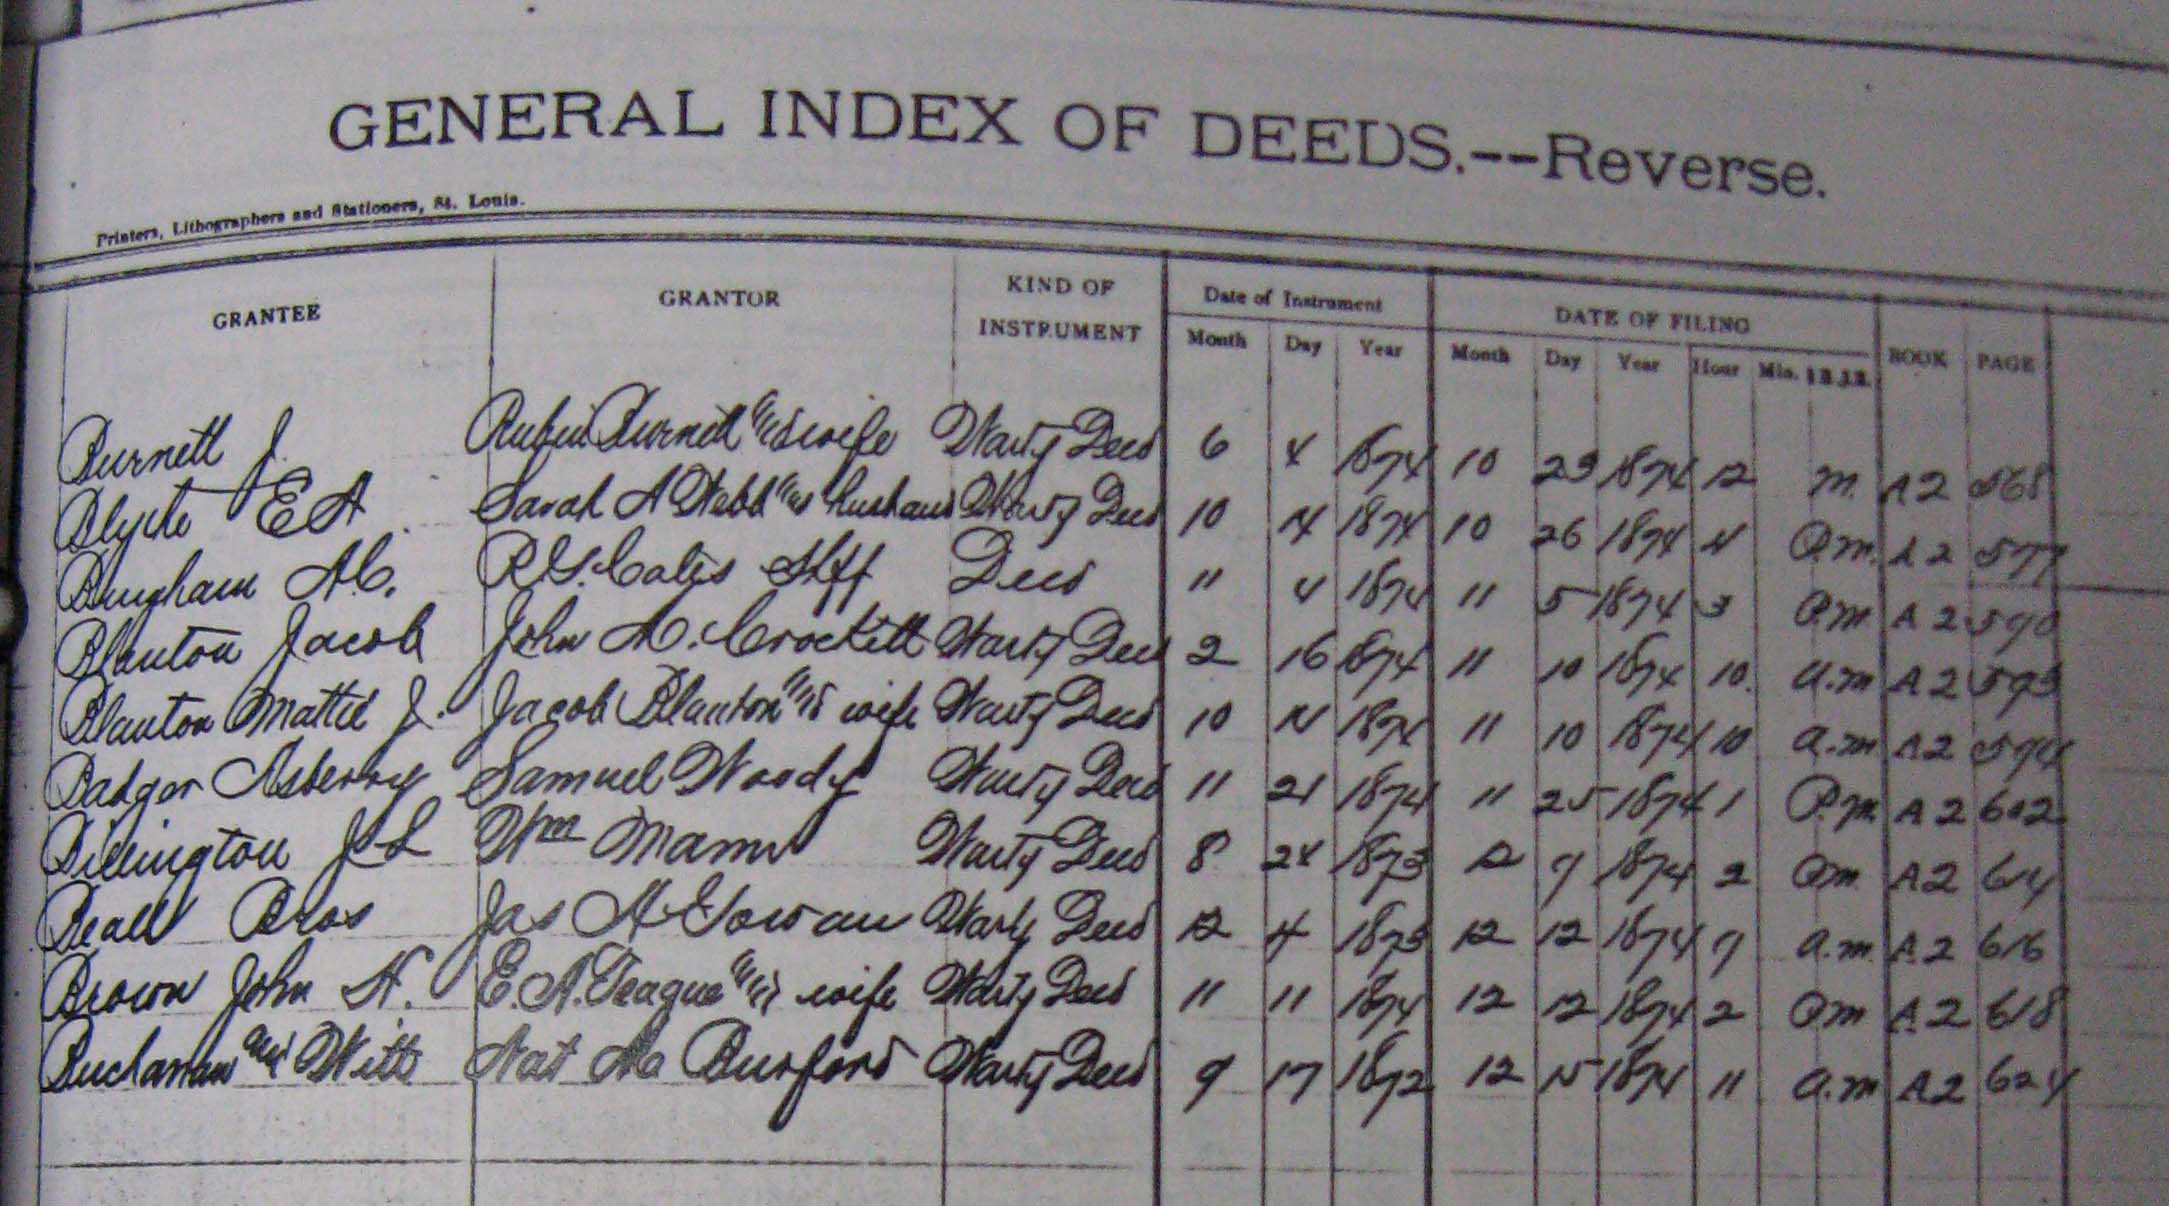 GENERAL INDEX OF DEEDS.--Reverse.
Printers, Lithographers and Stationers, St. Louis.
GRANTEE GRANTOR KIND OF INSTRUMENT Date of Instrument DATE OF FILING BOOK PAGE
Month Day Year Month Day Year Hour Min.
Burnett J. Rubin Burnett and wife Warty Deed 6 4 1874 10 23 1874 12 M. A2 568
Blythe E A Sarah A Webb and husband Warty Deed 10 14 1874 10 26 1874 4 P.m. A2 577
Bingham A.C. Shff Deed 11 4 1874 11 5 1874 3 P.M A2 590
Blanton Jacob John M. Crockett Warty Deed 2 16 1874 11 10 1874 10 a.m A2 593
Blanton Mattie J. Jacob Blanton and wife Warty Deed 10 1874 11 10 1874 10 a.m A2 594
Badger Asberry Samuel Woody Warty Deed 11 21 1874 11 25 1874 1 P.m. A2 602
Billington J L Wm Mann Warty Deed 8 24 1873 12 7 1874 2 Pm A2 614
Beall Bros Jas A Gowan Warty Deed 12 4 1873 12 12 1874 9 a.m. A2 616
Brown John H. E. A. Teague and wife Warty Deed 11 11 1874 12 12 1874 2 Pm A2 618
Buchanan and Witt Nat M Burford Warty Deed 9 17 1872 12 15 1874 11 a.m A2 624